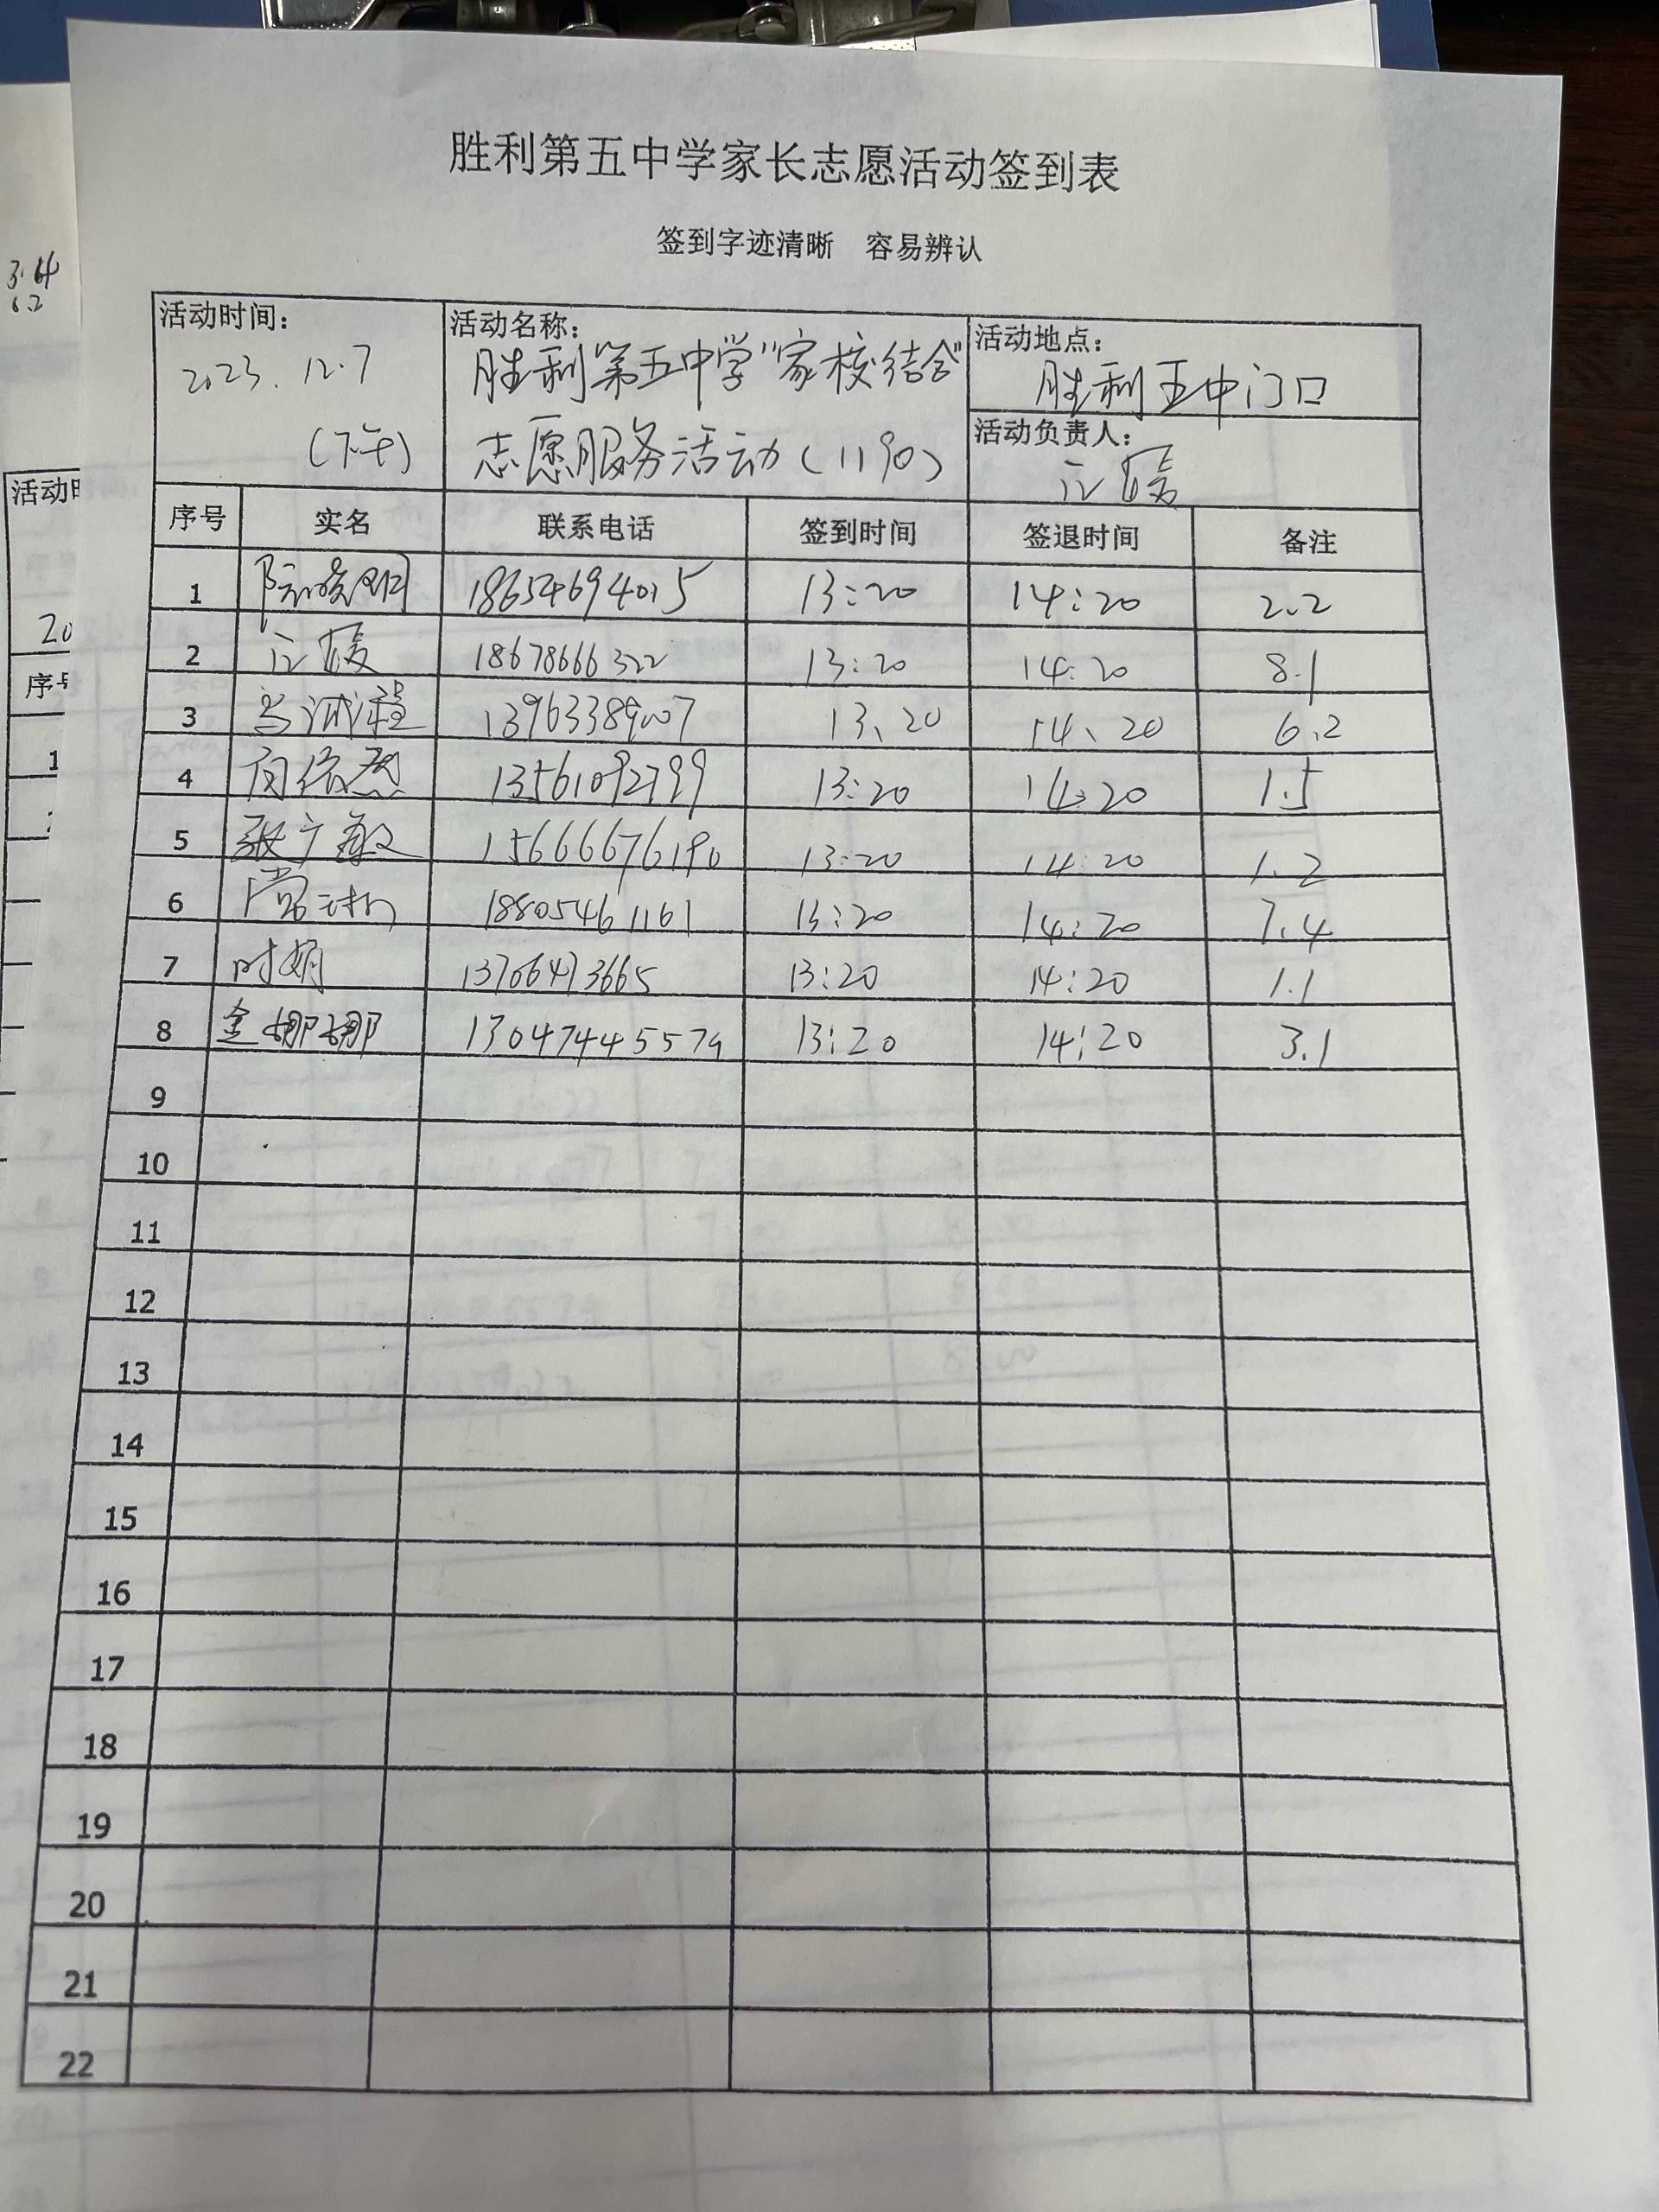 胜利第五中学家长志愿活动签到表
签到字迹清晰 容易辨认
活动时间: 2023.12.7 (下午)
活动名称: 胜利第五中学"家校结合"志愿服务活动(1190)
活动地点: 胜利五中门口
活动负责人:
序号 实名 联系电话 签到时间 签退时间 备注
1 18654694015 13:20 14:20 2.2
2 18678666322 13:20 14:20 8.1
3 13963389007 13、20 14、20 6.2
4 13561092799 13:20 14:20 1.5
5 张广敏 15666676190 13:20 14:20 1.2
6 18805461161 13:20 14:20 7.4
7 时娟 13706473665 13:20 14:20 1.1
8 金娜娜 13:20 14:20 3.1
9
10
11
12
13
14
15
16
17
18
19
20
21
22
3.4
6.2
活动时
20
序号
1